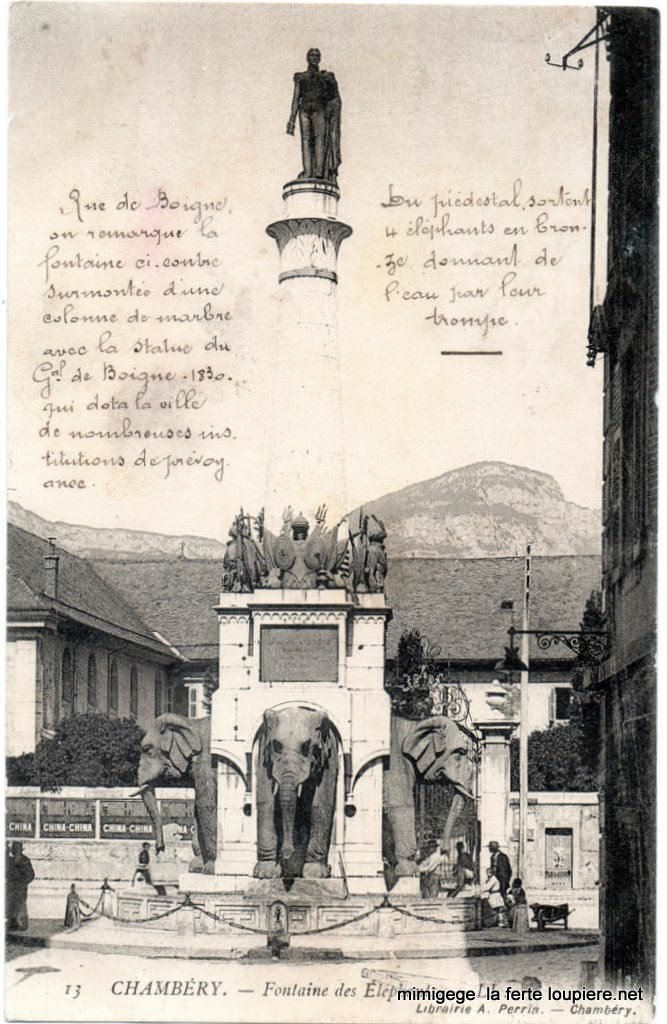 Rue de Boigne,
on remarque la
fontaine ci-contre
surmontée d'une
colonne de marbre
avec la statue du
Gal de Boigne - 1830 -
qui dota la ville
de nombreuses ins-
titutions de prévoy-
ance.
Du piédestal, sortent
4 éléphants en bron-
ze donnant de
l'eau par leur
trompe.
CHINA CHINA-CHINA CHINA-CHINA
13 CHAMBÉRY. — Fontaine des
mimigege la ferte loupiere.net
Librairie A. Perrin. — Chambéry.